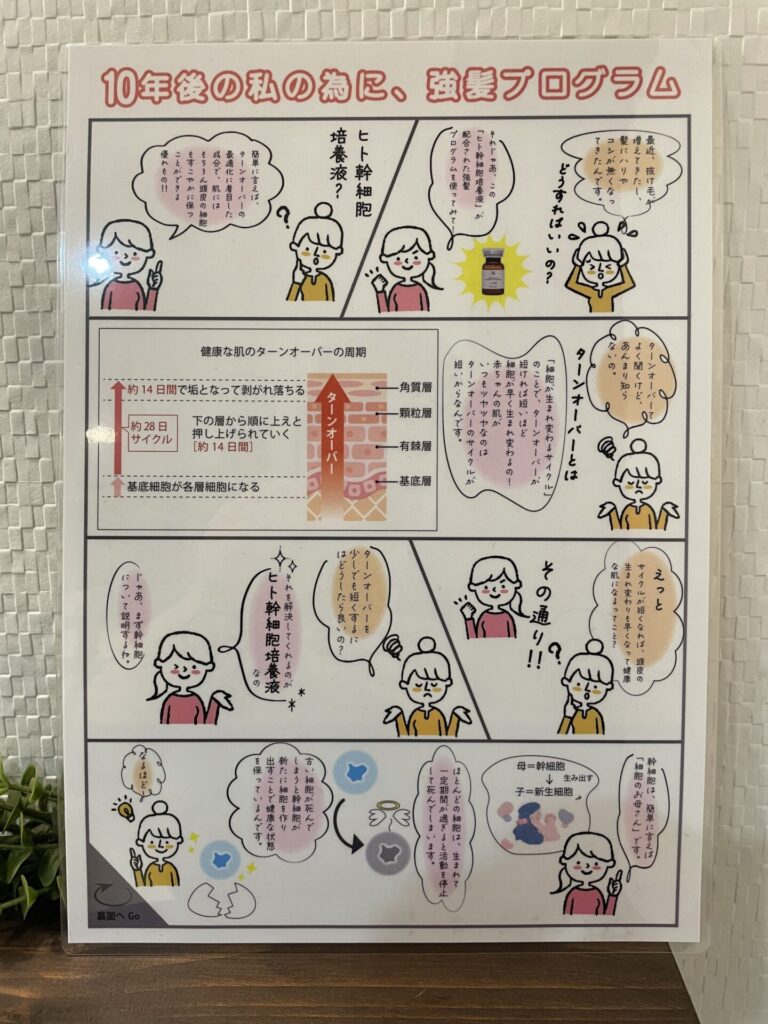 10年後の私の為に、強髪プログラム
最近、抜け毛が
増えてきたし、
髪にハリや
コシが無くなっ
てきたんです。
どうすればいいの？
それじゃあ、この
「ヒト幹細胞培養液」が
配合された強髪
プログラムを使ってみて！
ヒト幹細胞
培養液？
?
簡単に言えば、
ターンオーバーの
最適化に着目した
成分で、肌には
もちろん頭皮の細胞
もすこやかに保つ
ことができる
優れもの!!
ターンオーバーって
よく聞くけど、
あんまり知ら
ないの。
ターンオーバーとは
「細胞が生まれ変わるサイクル」
のことで、ターンオーバーが
短ければ短いほど
細胞が早く生まれ変わるの！
赤ちゃんの肌が
いつもツヤツヤなのは
ターンオーバーのサイクルが
短いからなんです。
健康な肌のターンオーバーの周期
約14日間で垢となって剥がれ落ちる
約28日
サイクル
下の層から順に上えと
押し上げられていく
［約14日間］
基底細胞が各層細胞になる
ターンオーバー
角質層
顆粒層
有棘層
基底層
えっと
サイクルが短くなれば、頭皮の
生まれ変わりも早くなって健康
な肌になるってこと？
?
その通り!!
ターンオーバーを
少しでも短くするに
はどうしたら良いの？
それを解決してくれるのが
ヒト幹細胞培養液
なの
じゃあ、まず幹細胞
について説明するね。
幹細胞は、簡単に言えば
「細胞のお母さん」です。
母＝幹細胞
↓ 生み出す
子＝新生細胞
ほとんどの細胞は、生まれて
一定期間が過ぎると活動を停止
して死んでしまいます。
古い細胞が死んで
しまうと幹細胞が
新たに細胞を作り
出すことで健康な状態
を保っているんです。
なるほど！
裏面へ Go